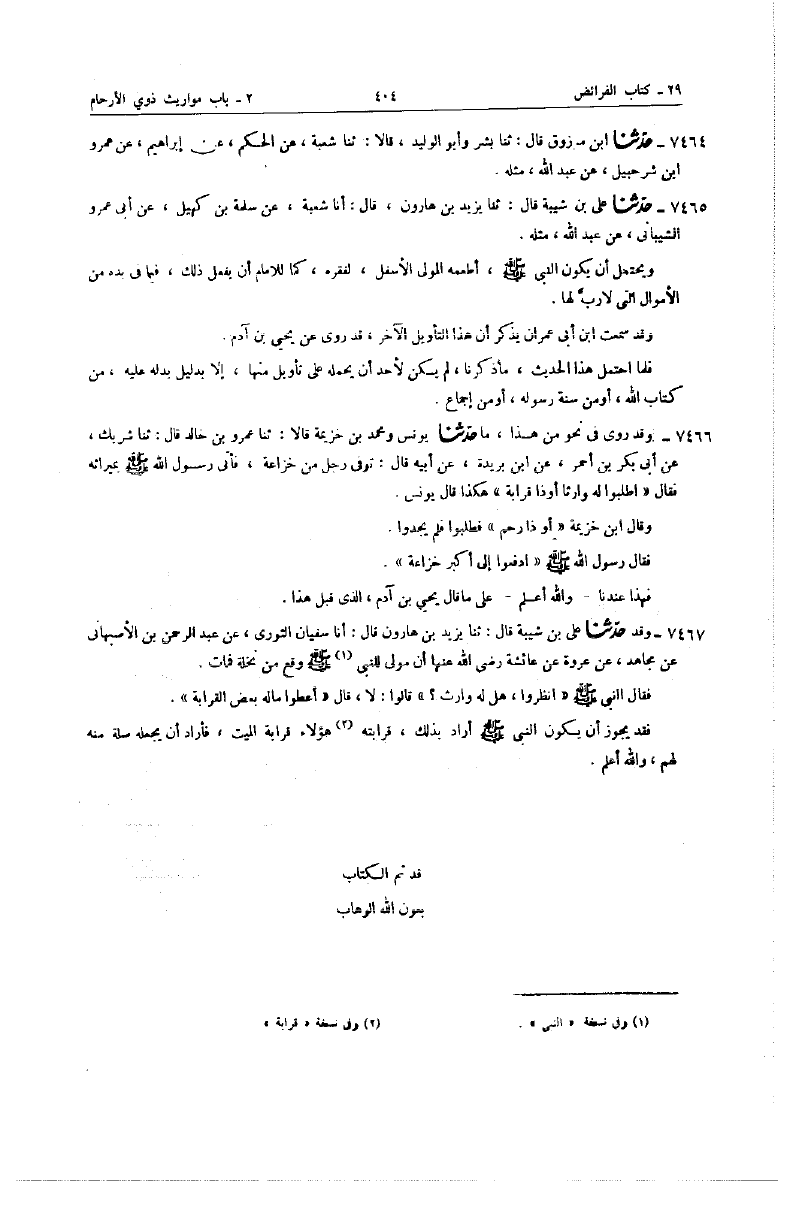 ٢٩ - كتاب الفرائض ٤٠٤ ٢ - باب مواريث ذوي الأرحام
٧٤٦٤ - حدثنا ابن مرزوق قال : ثنا بشر وأبو الوليد ، قالا : ثنا شعبة ، عن الحكم ، عن إبراهيم ، عن عمرو
ابن شرحبيل ، عن عبد الله ، مثله .
٧٤٦٥ - حدثنا على بن شيبة قال : ثنا يزيد بن هارون ، قال : أنا شعبة ، عن سلمة بن كهيل ، عن أبى عمرو
الشيبانى ، عن عبد الله ، مثله .
ويحتمل أن يكون النبي ﷺ ، أطعمه المولى الأسفل ، لفقره ، كما للامام أن يفعل ذلك ، فيما فى يده من
الأموال التى لارب لها .
وقد سمعت ابن أبى عمران يذكر أن هذا التأويل الآخر ، قد روى عن يحيى بن آدم .
فلما احتمل هذا الحديث ، ماذكرنا ، لم يكن لأحد أن يحمله على تأويل منها ، إلا بدليل يدله عليه ، من
كتاب الله ، أومن سنة رسوله ، أومن إجماع .
٧٤٦٦ - وقد روى فى نحو من هذا ، ما حدثنا يونس ومحمد بن خزيمة قالا : ثنا عمرو بن خالد قال : ثنا شريك ،
عن أبى بكر بن أحمر ، عن ابن بريدة ، عن أبيه قال : توفى رجل من خزاعة ، فأتى رسول الله ﷺ بميراثه
فقال « اطلبوا له وارثا أوذا قرابة » هكذا قال يونس .
وقال ابن خزيمة « أو ذا رحم » فطلبوا فلم يجدوا .
فقال رسول الله ﷺ « ادفعوا إلى أكبر خزاعة » .
فهذا عندنا - والله أعلم - على ماقال يحيى بن آدم ، الذى قبل هذا .
٧٤٦٧ - وقد حدثنا على بن شيبة قال : ثنا يزيد بن هارون قال : أنا سفيان الثورى ، عن عبد الرحمن بن الأصبهانى
عن مجاهد ، عن عروة عن عائشة رضى الله عنها أن مولى للنبي (١) ﷺ وقع من نخلة فمات .
فقال النبي ﷺ « انظروا ، هل له وارث ؟ » قالوا : لا ، قال « أعطوا ماله بعض القرابة » .
فقد يجوز أن يكون النبي ﷺ أراد بذلك ، قرابته (٢) هؤلاء قرابة الميت ، فأراد أن يجعله صلة منه
لهم ، والله أعلم .
قد تم الكتاب
بعون الله الوهاب
(١) وفى نسخة « النبي » . (٢) وفى نسخة « قرابة »